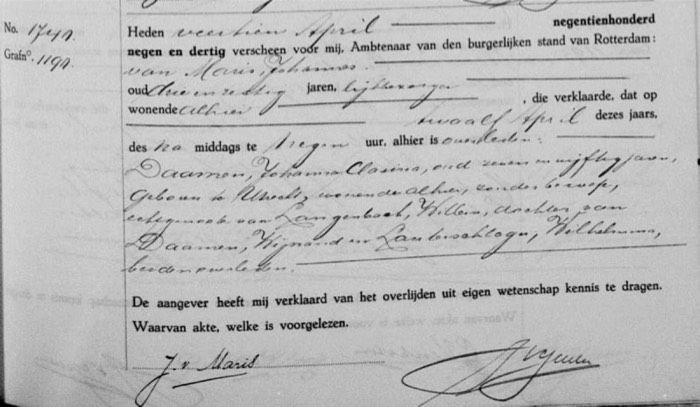 No. 1741.
Grafno. 1191.
Heden veertien April negentienhonderd
negen en dertig verscheen voor mij, Ambtenaar van den burgerlijken stand van Rotterdam:
van Maris, Johannes
oud drie en zestig jaren, lijkbezorger
wonende alhier, die verklaarde, dat op
twaalf April dezes jaars,
des na middags te negen uur, alhier is overleden:
Daamen, Johanna Clasina, oud zeven en vijftig jaren,
geboren te Utrecht, wonende alhier, zonder beroep,
echtgenoote van Langenbach, Willem, dochter van
Daamen, Wijnand en Lauterschlage, Wilhelmina,
beiden overleden.
De aangever heeft mij verklaard van het overlijden uit eigen wetenschap kennis te dragen.
Waarvan akte, welke is voorgelezen.
J. v. Maris